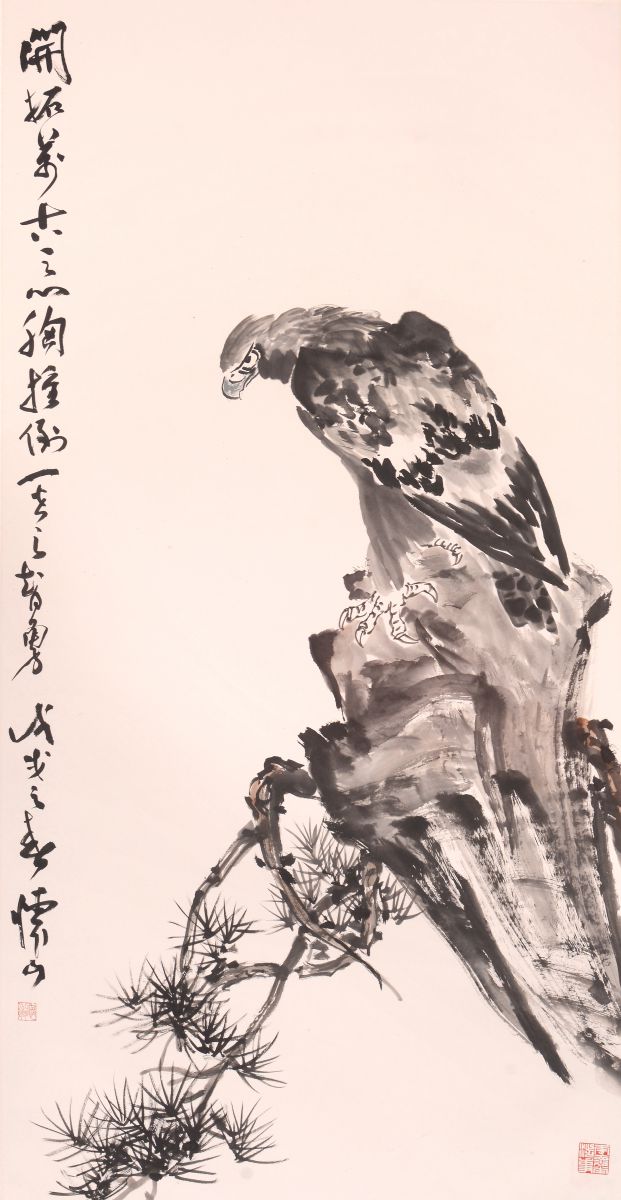 開拓萬古之心胸推倒一世之智勇 戊戌之春懷山